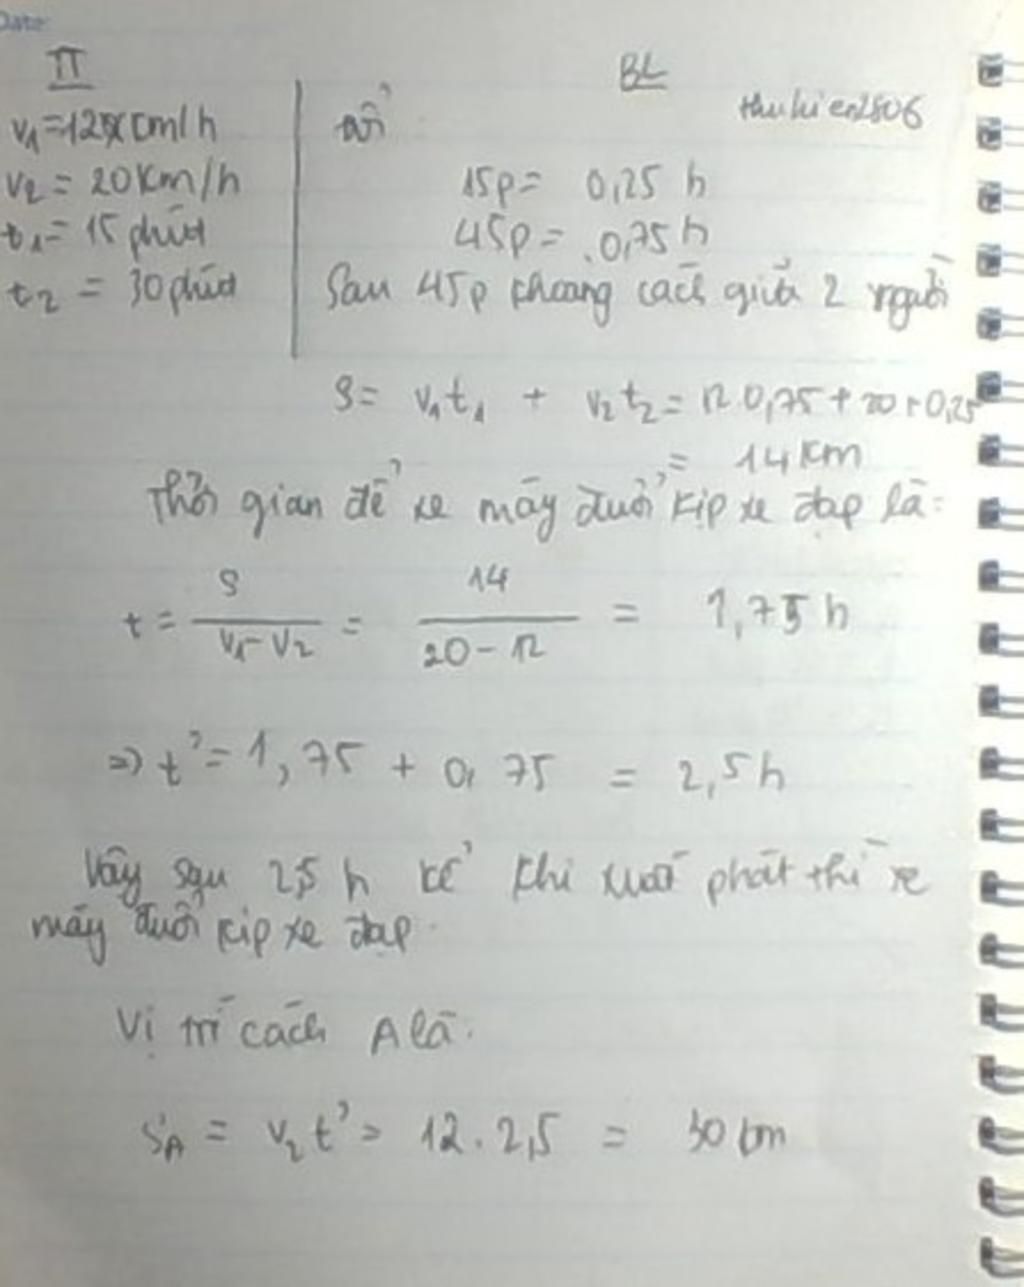 Date:
TT
BL
thuhien2806
v1 = 12 km/h
v2 = 20 km/h
t1 = 15 phút
t2 = 30 phút
đổi
15p = 0,25 h
45p = 0,75 h
Sau 45p khoảng cách giữa 2 người
S = v1t1 + v2t2 = 12.0,75 + 20.0,25
= 14 km
Thời gian để xe máy đuổi kịp xe đạp là:
t = S / (v1 - v2) = 14 / (20 - 12) = 1,75 h
=> t' = 1,75 + 0,75 = 2,5 h
Vậy sau 2,5 h kể khi xuất phát thì xe
máy đuổi kịp xe đạp.
Vị trí cách A là:
SA = v2 t' = 12 . 2,5 = 30 km